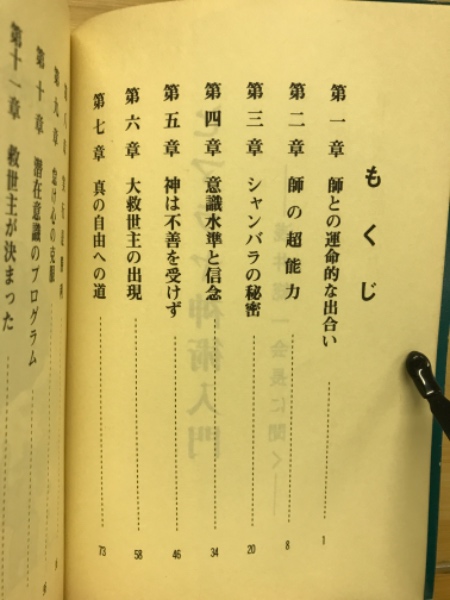 もくじ
第一章 師との運命的な出合い 1
第二章 師の超能力 8
第三章 シャンバラの秘密 20
第四章 意識水準と信念 34
第五章 神は不善を受けず 46
第六章 大救世主の出現 58
第七章 真の自由への道 73
第九章 怠け心の克服
第十章 潜在意識のプログラム
第十一章 救世主が決まった